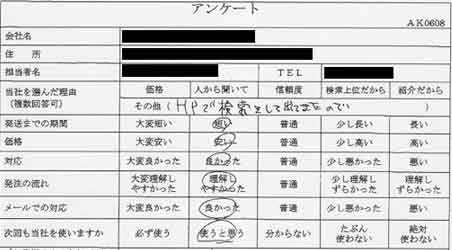 アンケート
AK0608
会社名
住 所
担当者名 TEL
当社を選んだ理由 価格 人から聞いて 信頼度 検索上位だから 紹介だから
(複数回答可) その他 ( HPで検索をして出てきたので )
発送までの期間 大変短い 短い 普通 少し長い 長い
価格 大変安い 安い 普通 少し高い 高い
対応 大変良かった 良かった 普通 少し悪かった 悪い
発注の流れ 大変理解しやすかった 理解しやすかった 普通 少し理解しずらかった 理解しずらかった
メールでの対応 大変良かった 良かった 普通 少し悪かった 悪い
次回も当社を使いますか 必ず使う 使うと思う 分からない たぶん使わない 絶対使わない